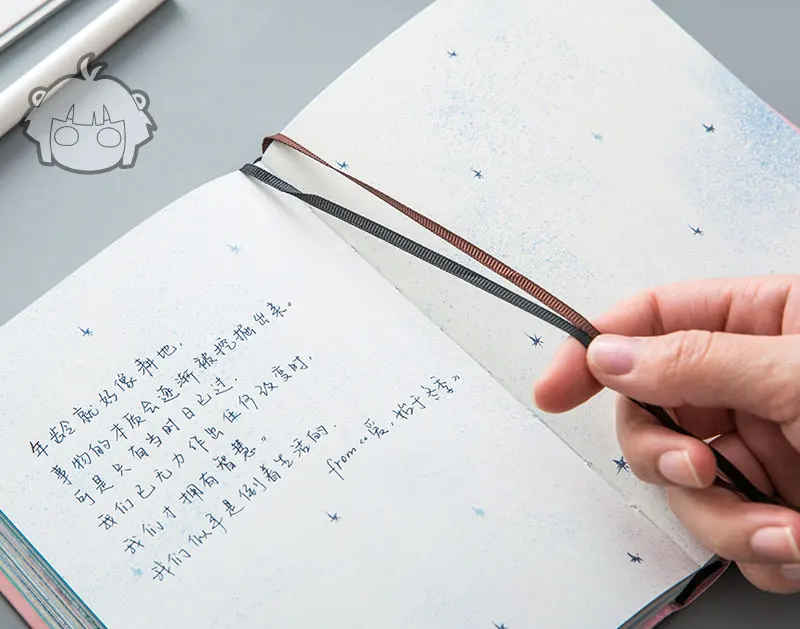 年龄就好像耕地.
事物的本质会逐渐被挖掘出来。
可是只有当时日已过.
我们已无力作出任何改变时,
我们才拥有智慧。
我们似乎是倒着生活的.
from《爱,始于冬季》